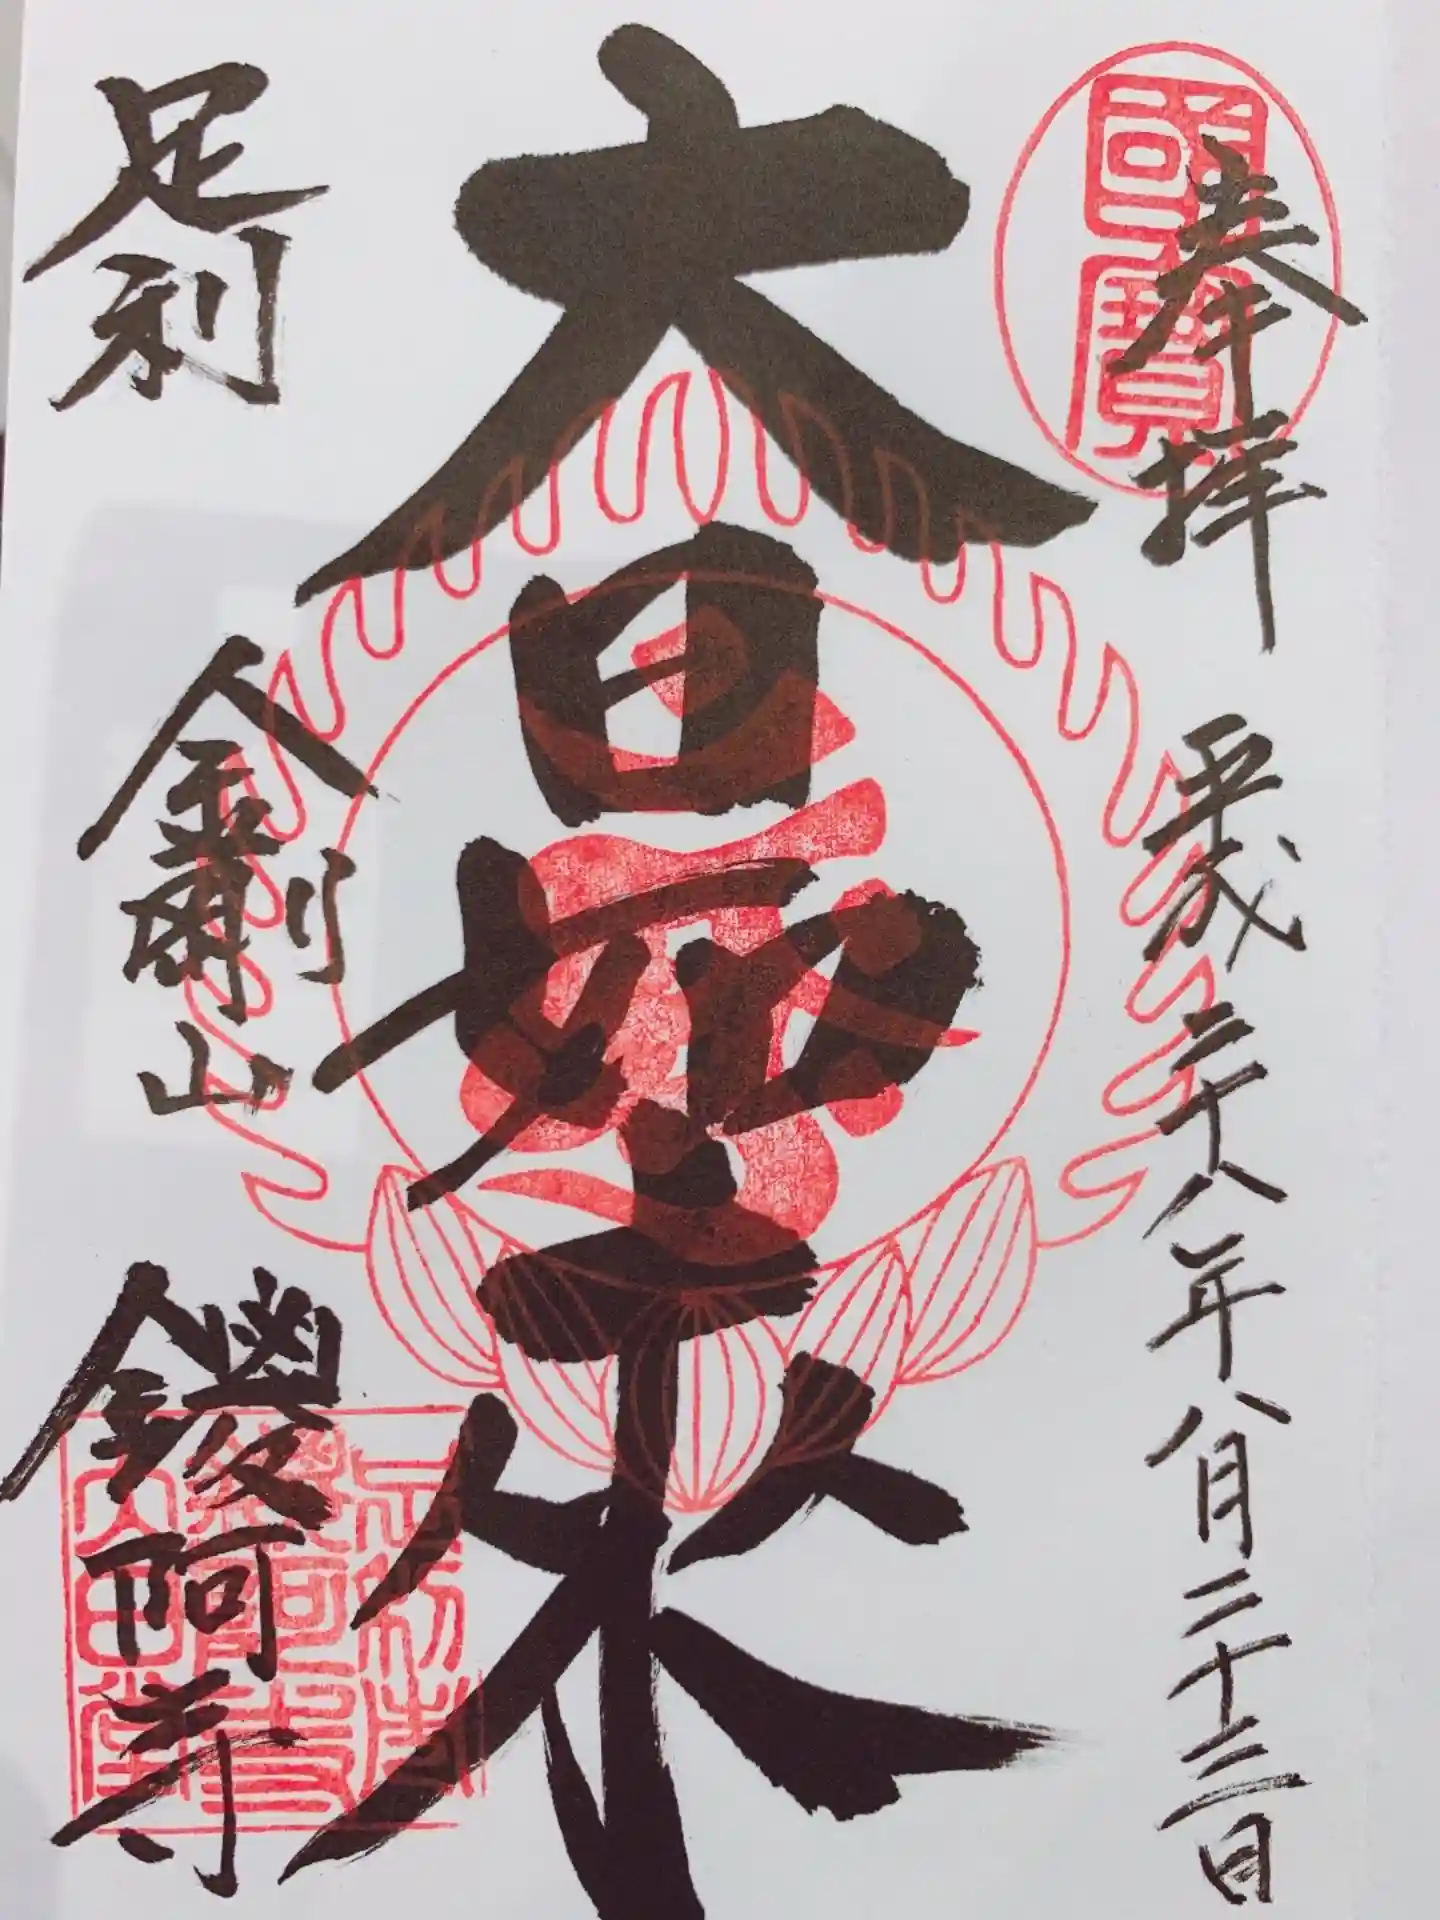 奉拝
國寶
平成二十八年八月二十三日
大日如来
足利
金剛山
鑁阿寺